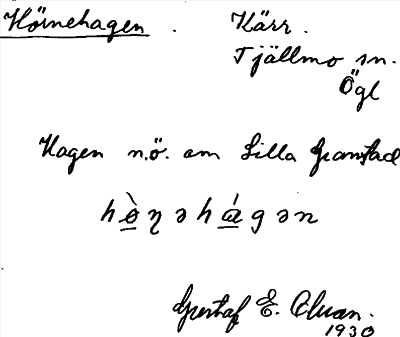 Hörnehagen. Kärr.
Tjällmo sn.
Ögl
Hagen n.ö. om Lilla Granstad
hòṇəhágən
Gustaf E. Olvan.
1930